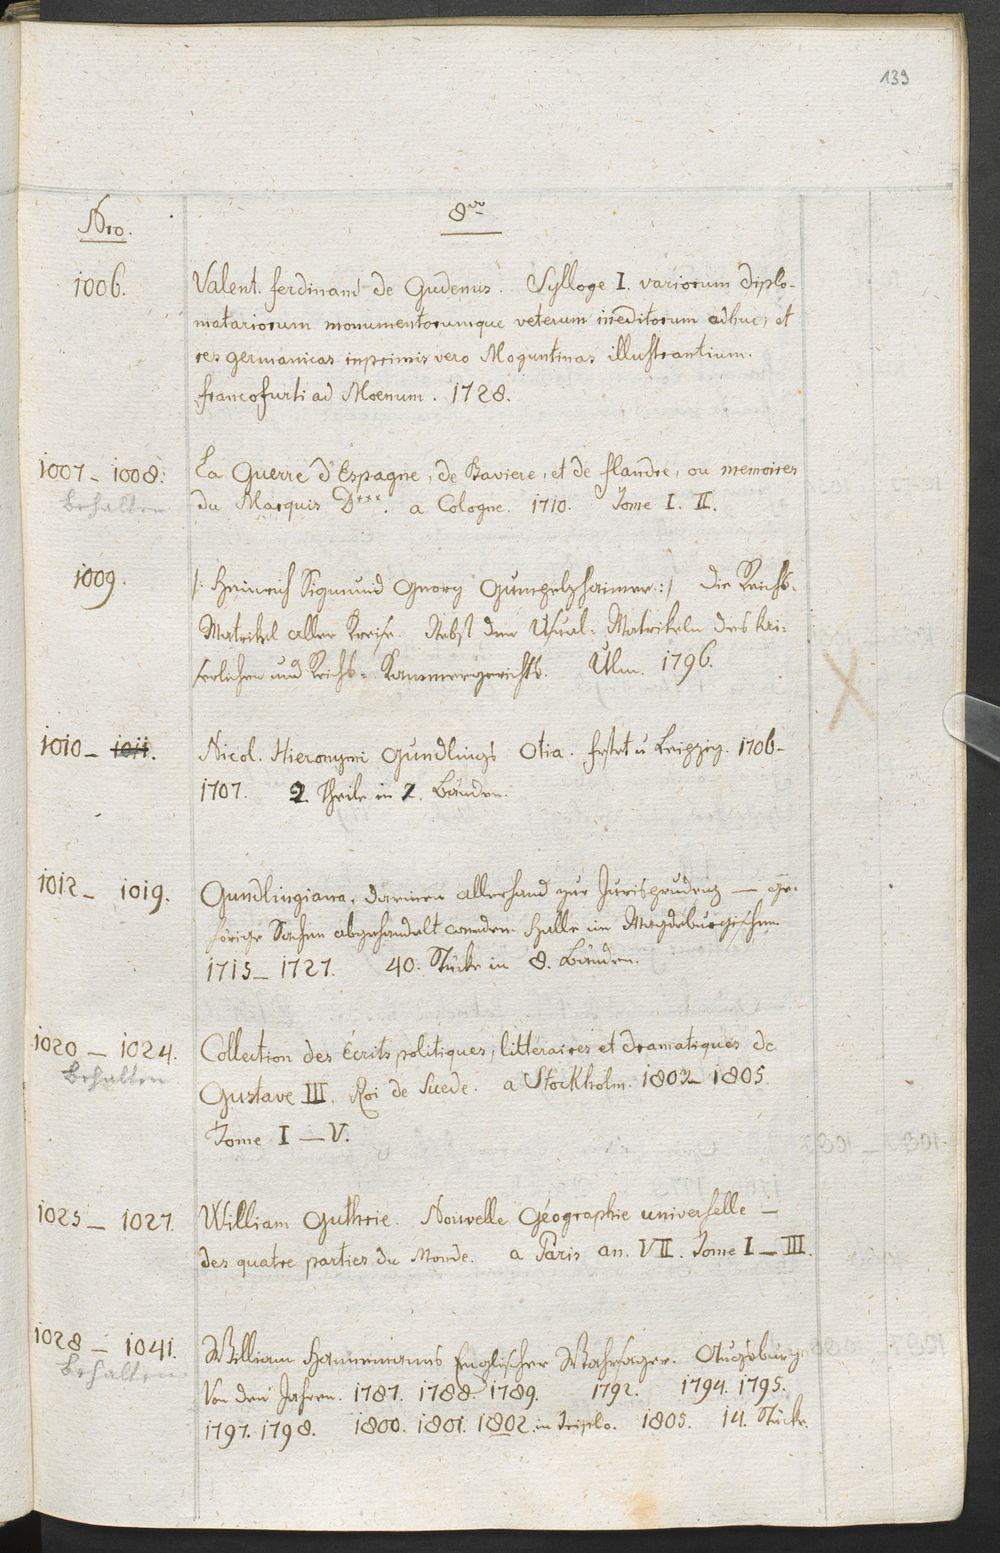 139
Nro.
8vo
1006.
Valent. ferdinand de Gudenus. Sylloge I. variorum diplo-
matariorum monumentorumque veterum ineditorum adhuc, et
res germanicas inprimis vero Moguntinas illustrantium.
francofurti ad Moenum. 1728.
1007 - 1008.
behalten
La Guerre d'Espagne, de Baviere, et de flandre, ou memoires
du Marquis D***. a Cologne. 1710. Tome I. II.
1009.
/: Heinrich Sigmund Georg Gumpelzhaimer :/ Die Reichs-
Matrikel aller Kreise. Nebst den Usual-Matrikeln des kai-
serlichen und Reichs-Kammergerichts. Ulm. 1796.
1010 - 1011.
Nicol. Hieronymi Gundlings Otia. frft u Leipzig. 1706-
1707. 2 Theile in 2. Bänden.
1012 - 1019.
Gundlingiana, darinnen allerhand zur Jurisprudenz — ge-
hörige Sachen abgehandelt werden. Halle im Magdeburgischen
1715 - 1727. 40. Stücke in 8. Bänden.
1020 - 1024.
behalten
Collection des Écrits politiques, litteraires et dramatiques de
Gustave III. Roi de Suede. a Stockholm. 1803 - 1805.
Tome I — V.
1025 - 1027.
William Guthrie. Nouvelle Géographie universelle —
des quatre parties du Monde. a Paris an. VII. Tome I — III.
1028 - 1041.
behalten
William Hannemanns Englischer Wahrsager. Augsburg
Von den Jahren. 1787. 1788. 1789. 1792. 1794. 1795.
1797. 1798. 1800. 1801. 1802. in triplo. 1805. 14. Stücke.